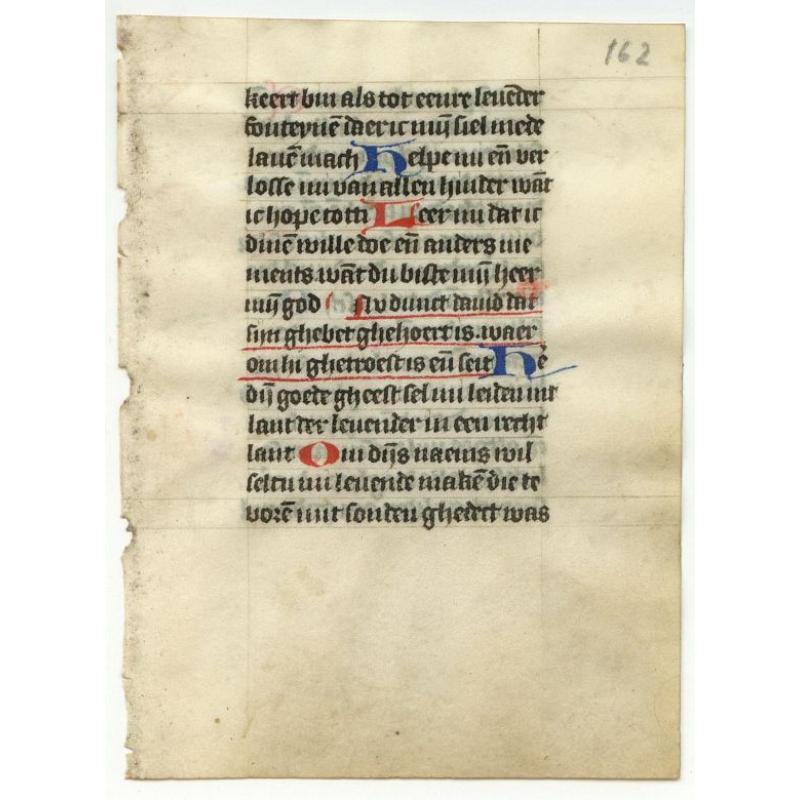 162
keert bin als tot eenre leuēder
fonteynē daer ic mijn siel mede
lauē mach Helpe mi eñ ver
losse mi van allen hinder wāt
ic hope tot ti Leer mi dat ic
dinē wille doe eñ anders nie
ments wāt du biste mijn heer
mijn god Nv dunct dauid dat
sijn ghebet ghehoert is waer
om hi ghetroest is eñ seit He
dijn goede gheest sel mi leiden int
lant der leuender in een recht
lant Om dijns naems wil
seltu mi leuende makē die te
vorē mit sonden ghedect was